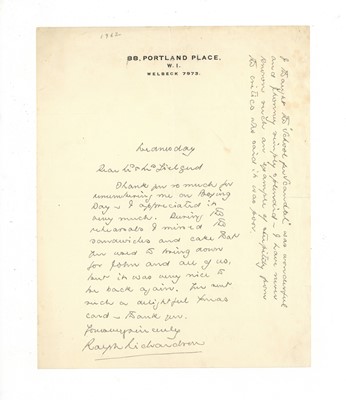 1962
88, PORTLAND PLACE,
W. 1.
WELBECK 7972.
Wednesday
Dear Mr & Mrs
Thank you so much for
remembering me on Boxing
Day – I appreciated it
very much. During the
rehearsals I missed the
sandwiches and cake that
you used to bring down
for John and all of us,
but it was very nice to
be back again. In
such a delightful Xmas
card – Thank you.
Yours very sincerely
Ralph Richardson
I thought the 'School for Scandal' was wonderful
and funny simply splendid – I have never
known such an example of stupidity from
the critics who said it was poor.